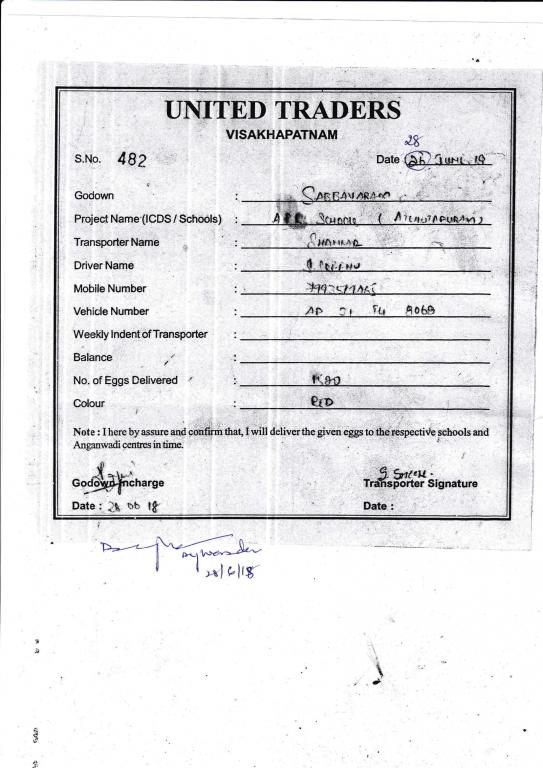 UNITED TRADERS
VISAKHAPATNAM
28
S.No. 482 Date : 26 JUNE 18
Godown : SABBAVARAM
Project Name (ICDS / Schools) : SCHOOLS ( ATCHUTAPURAM )
Transporter Name : SHANKAR
Driver Name :
Mobile Number :
Vehicle Number : AP 31
Weekly Indent of Transporter :
Balance :
No. of Eggs Delivered :
Colour : RED
Note : I here by assure and confirm that, I will deliver the given eggs to the respective schools and
Anganwadi centres in time.
Godown Incharge Transporter Signature
Date : 28 06 18 Date :
28/6/18